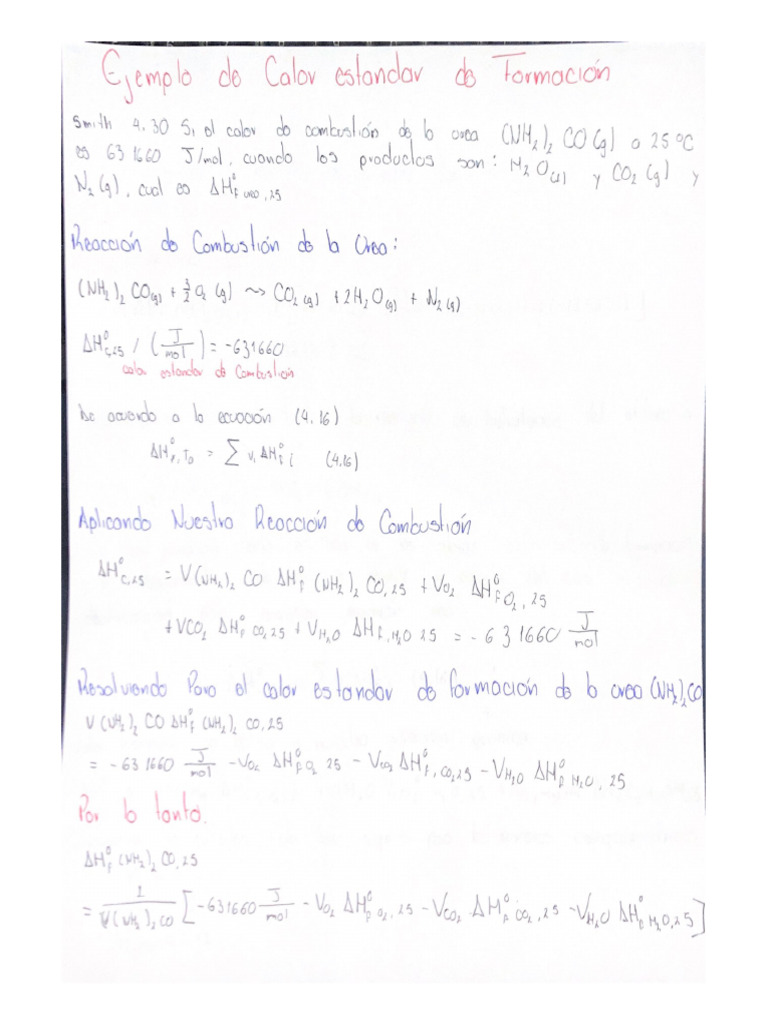 Ejemplo de Calor estandar de Formación
Smith 4.30 Si el calor de combustión de la urea (NH₂)₂ CO (g) a 25 °C
es 631660 J/mol, cuando los productos son: H₂O(l) y CO₂ (g) y
N₂ (g), cual es ΔH°f urea, 25
Reacción de Combustión de la Urea:
(NH₂)₂ CO(g) + 3/2 O₂ (g) ⤳ CO₂ (g) + 2H₂O(g) + N₂ (g)
ΔH°c,25 / (J/mol) = -631660
calor estandar de Combustión
De acuerdo a la ecuación (4.16)
ΔH°r,T₀ = Σ νᵢ ΔH°f i (4.16)
Aplicando Nuestra Reacción de Combustión
ΔH°c,25 = V(NH₂)₂ CO ΔH°f (NH₂)₂ CO, 25 + VO₂ ΔH°f O₂, 25
+ VCO₂ ΔH°f CO₂, 25 + VH₂O ΔHf, H₂O 25 = -631660 J/mol
Resolviendo Para el calor estandar de formación de la urea (NH₂)₂CO
V (NH₂)₂ CO ΔH°f (NH₂)₂ CO, 25
= -631660 J/mol - VO₂ ΔH°f O₂ 25 - VCO₂ ΔH°f, CO₂,25 - VH₂O ΔH°f H₂O, 25
Por lo tanto.
ΔH°f (NH₂)₂ CO, 25
= 1/V(NH₂)₂ CO [-631660 J/mol - VO₂ ΔH°f O₂, 25 - VCO₂ ΔH°f CO₂, 25 - VH₂O ΔH°f H₂O, 25]